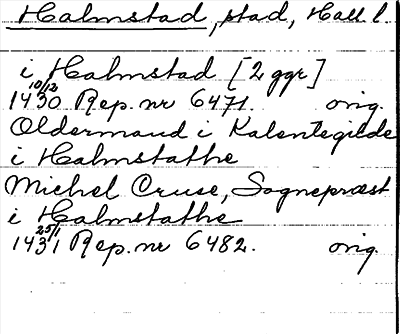 Halmstad, stad, Hall l.
i Halmstad [2 ggr]
1430 10/12 Rep. nr 6471 orig.
Oldermand i Kalentegilde
i Halmstathe
Michel Cruse, Sognepræst
i Halmstathe
1431 25/1 Rep. nr 6482. orig.